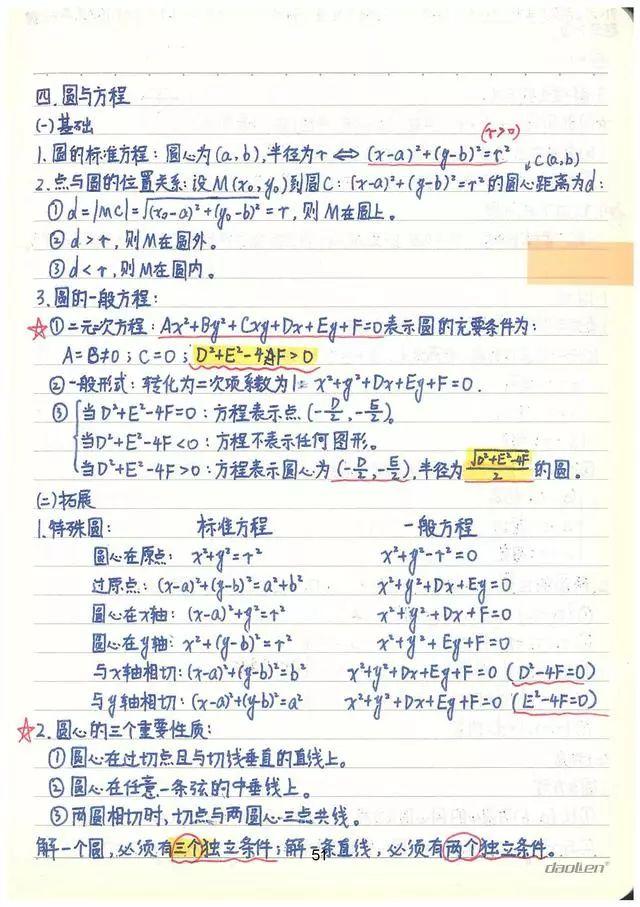 四. 圆与方程
(一)基础
1. 圆的标准方程：圆心为(a,b), 半径为r ⇔ (x-a)²+(y-b)²=r² (r>0)
2. 点与圆的位置关系：设M(x₀,y₀)到圆C：(x-a)²+(y-b)²=r²的圆心C(a,b)距离为d：
① d=|MC|=√(x₀-a)²+(y₀-b)² = r, 则M在圆上。
② d>r, 则M在圆外。
③ d<r, 则M在圆内。
3. 圆的一般方程：
☆①二元二次方程：Ax²+By²+Cxy+Dx+Ey+F=0表示圆的充要条件为：
A=B≠0；C=0；D²+E²-4AF>0
②一般形式：转化为二次项系数为1= x²+y²+Dx+Ey+F=0.
③ { 当D²+E²-4F=0：方程表示点(-D/2,-E/2)。
当D²+E²-4F<0：方程不表示任何图形。
当D²+E²-4F>0：方程表示圆心为(-D/2,-E/2), 半径为√D²+E²-4F/2的圆。
(二)拓展
1. 特殊圆： 标准方程 一般方程
圆心在原点： x²+y²=r² x²+y²-r²=0
过原点：(x-a)²+(y-b)²=a²+b² x²+y²+Dx+Ey=0
圆心在x轴：(x-a)²+y²=r² x²+y²+Dx+F=0
圆心在y轴：x²+(y-b)²=r² x²+y²+Ey+F=0
与x轴相切：(x-a)²+(y-b)²=b² x²+y²+Dx+Ey+F=0 (D²-4F=0)
与y轴相切：(x-a)²+(y-b)²=a² x²+y²+Dx+Ey+F=0 (E²-4F=0)
☆2. 圆心的三个重要性质：
①圆心在过切点且与切线垂直的直线上。
②圆心在任意一条弦的中垂线上。
③两圆相切时, 切点与两圆心三点共线。
解一个圆, 必须有三个独立条件；解一条直线, 必须有两个独立条件。
51
daolien